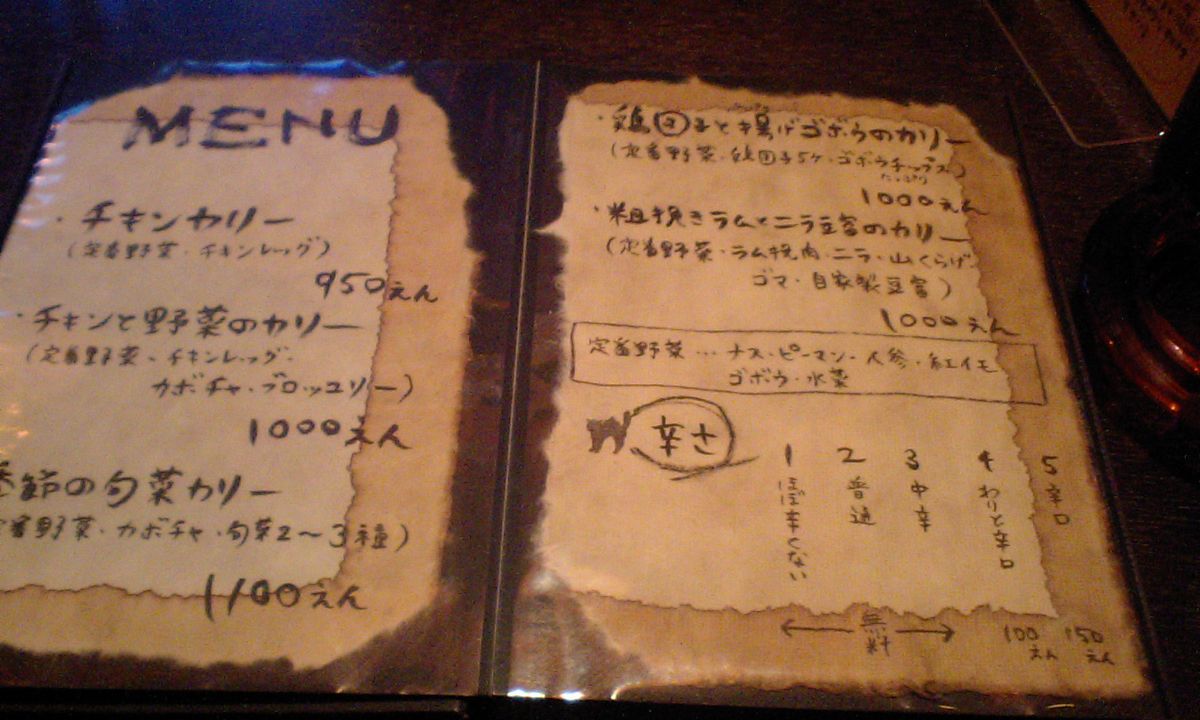 MENU
・チキンカリー
(定番野菜・チキンレッグ)
950えん
・チキンと野菜のカリー
(定番野菜・チキンレッグ・
カボチャ・ブロッコリー)
1000えん
季節の旬菜カリー
定番野菜・カボチャ・旬菜2〜3種)
1100えん
・鶏団子と揚げゴボウのカリー
(定番野菜・鶏団子5ケ・ゴボウチップス)
たっぷり
1000えん
・粗挽きラムとニラ豆富のカリー
(定番野菜・ラム挽肉・ニラ・山くらげ
ゴマ・自家製豆富)
1000えん
定番野菜…ナス・ピーマン・人参・紅イモ
ゴボウ・水菜
辛さ
1 ほぼ辛くない
2 普通
3 中辛
4 わりと辛口
5 辛口
無料
100えん
150えん